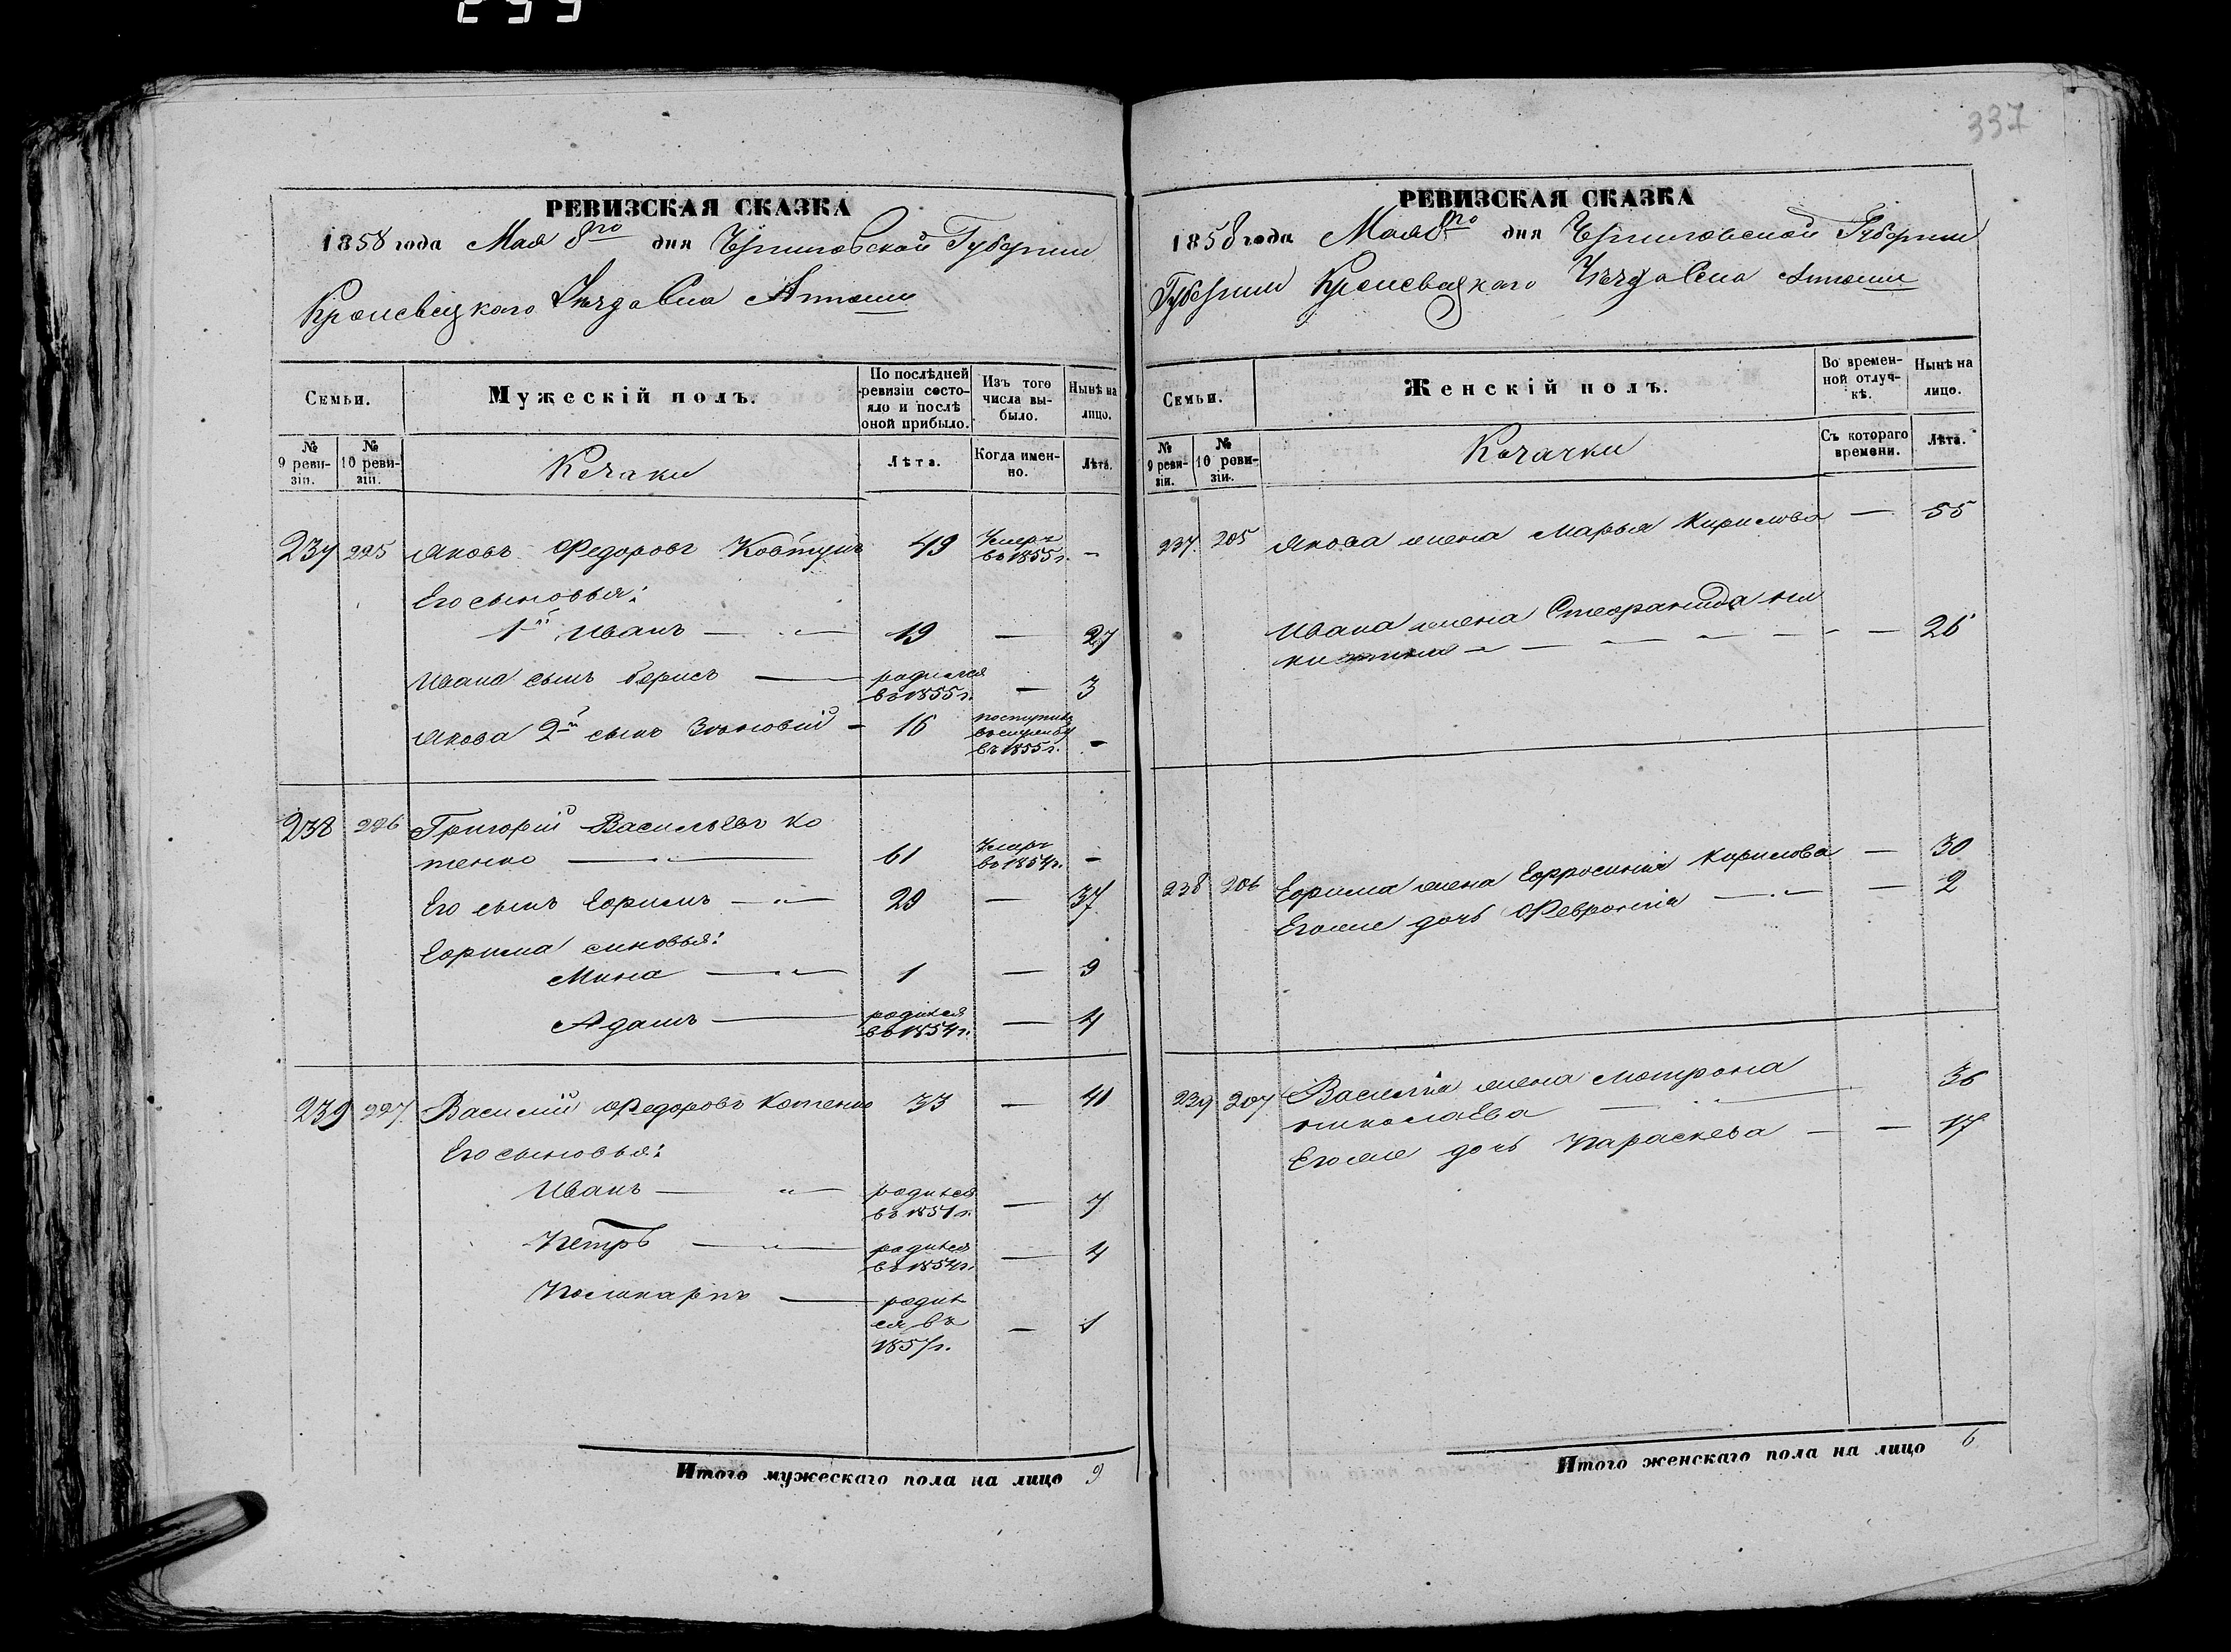 299
337
РЕВИЗСКАЯ СКАЗКА
1858 года Мая 8го дня Черниговской Губернии
Кролевецкого Уѣзда Села
По послѣдней ревизіи состояло и послѣ оной прибыло.
Изъ того числа выбыло.
Нынѣ на лицо.
Семьи.
Мужескій полъ.
№ 9 ревизіи.
№ 10 ревизіи.
Козаки
Лѣта.
Когда именно.
Лѣта.
237 225 Яковъ Федоровъ Ковтунъ 49 Умеръ въ 1855 г. -
Его сыновья:
1й Иванъ — 19 — 27
Ивана сынъ Борисъ — родился въ 1855 г. — 3
Якова 2й сынъ Зѣновій - 16 поступилъ въ 1855 г. -
238 226 Григорій Васильевъ Ко
тенко — 61 Умеръ въ 1854 г. -
Его сынъ Ефримъ — 29 — 37
Ефрима синовья:
Мина — 1 — 9
Адамъ — родился въ 1854 г. — 4
239 227 Василій Федоровъ Котенко 33 — 41
Его сыновья:
Иванъ — родился въ 1851 г. — 7
Петръ — родился въ 1854 г. — 4
Поликарпъ — родился въ 1857 г. — 1
Итого мужескаго пола на лицо 9
РЕВИЗСКАЯ СКАЗКА
1858 года Мая 8го дня Черниговской Губернии
Губернии Кролевецкого Уѣзда Села
Семьи.
Женскій полъ.
Во временной отлучкѣ.
Нынѣ на лицо.
№ 9 ревизіи.
№ 10 ревизіи.
Козачки
Съ котораго времени.
Лѣта.
237. 205 Якова жена Марья Кирилова — 55
Ивана жена Стефанида Ни
китина — — 26
238 206 Ефрима жена Ефросинія Кирилова — 30
Егоже дочь Февронія — — 2
239 207 Василія жена Мотрона
Николаева — 36
Егоже дочь Параскева — — 17
Итого женскаго пола на лицо 6